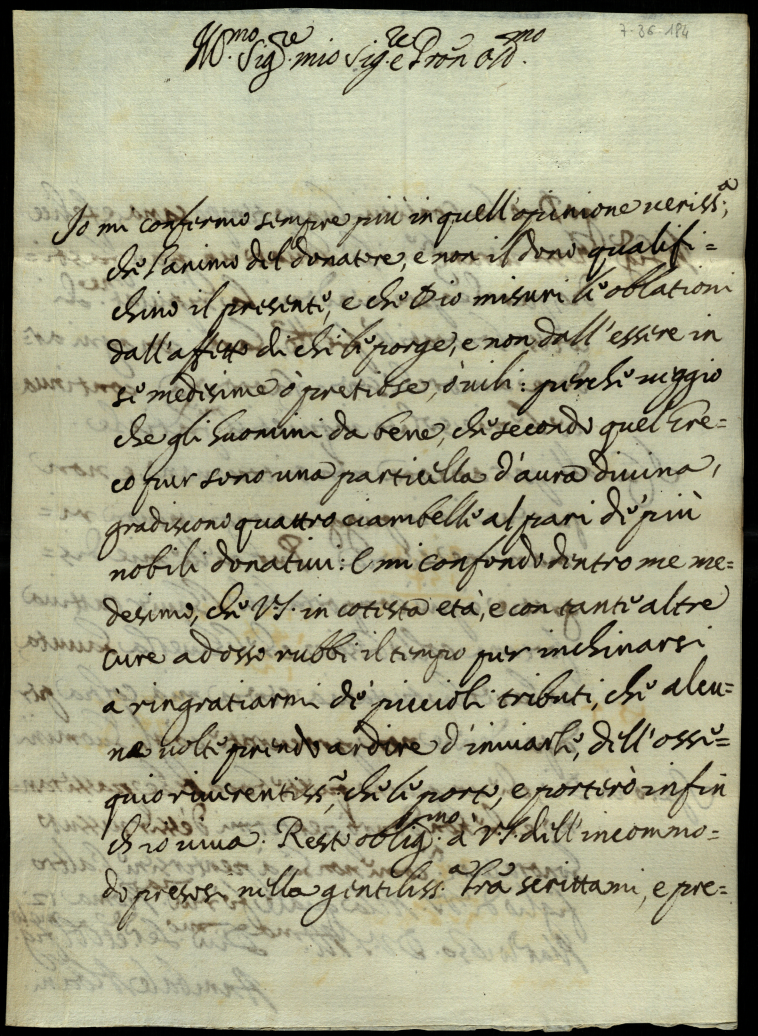 7-36-184
Ill.mo Sig.re mio Sig.re e Pron Oss.mo
Io mi confermo sempre più in quell'opinione veriss.a,
che l'animo del donatore, e non il dono qualifi=
chino il presente, e che Dio misuri le oblationi
dall'affetto di chi le porge, e non dall'essere in
se medesime ò pretiose, ò vili: perche veggio
che gli huomini da bene, che secondo quel Gre=
co pur sono una particella d'aura divina,
gradiscono quattro ciambelle al pari de' più
nobili donativi: E mi confondo dentro me me=
desimo, che V.S. in cotesta età, e con tante altre
cure adosso rubbi il tempo per inchinarsi
à ringratiarmi de' piccioli tributi, che alcu=
ne volte prendo ardire d'inviarle, dell'osse=
quio riverentiss.o, che le porto, e porterò infin
ch'io viva. Resto oblig.mo à V.S. dell'incommo=
do presosi nella gentiliss.a lra scrittami, e pre=